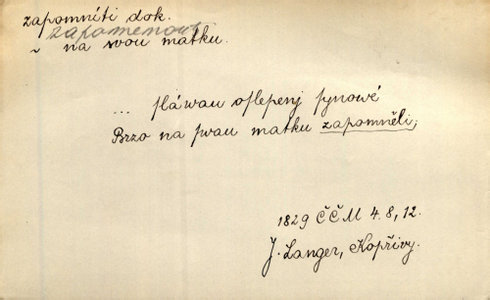 zapomníti dok.
zapomenout
~ na svou matku.
... slávau oslepenj synowé
Brzo na swau matku zapomněli;
1829 ČČM 4.8, 12.
J. Langer, Kopřivy.